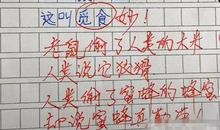 这叫觅食妙！
老鼠偷了人类的大米
人类说它狡猾
人类偷了蜜蜂的蜂蜜
却说蜜蜂真勤劳